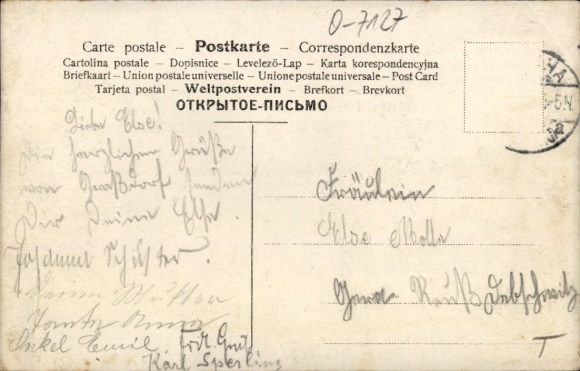 O-7127
Carte postale – Postkarte – Correspondenzkarte
Cartolina postale – Dopisnice – Levelező-Lap – Karta korespondencyjna
Briefkaart – Union postale universelle – Unione postale universale – Post Card
Tarjeta postal – Weltpostverein – Brefkort – Brevkort
ОТКРЫТОЕ-ПИСЬМО
Liebe Else!
Die herzlichen Grüße
von Graßdorf sendet
Dir Deine Else.
Schuster.
Deine Mutter
Tante Anna
Onkel Emil
Karl Sperling
Fräulein
Else Molle
Gera - Reuß Debschwitz
T